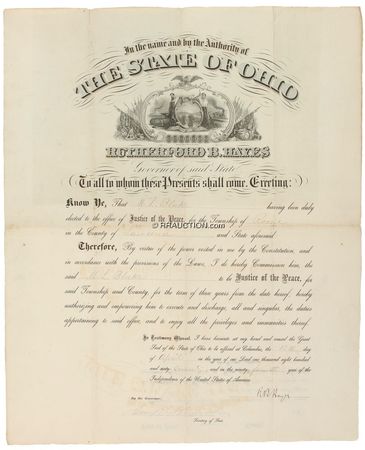 In the name and by the Authority of
THE STATE OF OHIO
RUTHERFORD B. HAYES
Governor of said State
To all to whom these Presents shall come, Greeting:
Know Ye, That having been duly
elected to the office of Justice of the Peace, for the Township of
in the County of and State aforesaid
Therefore, By virtue of the power vested in me by the Constitution, and
in accordance with the provisions of the Laws, I do hereby Commission him, the
said to be Justice of the Peace, for
said Township and County, for the term of three years from the date hereof, hereby
authorizing and empowering him to execute and discharge, all and singular, the duties
appertaining to said office, and to enjoy all the privileges and immunities thereof.
In Testimony Whereof, I have hereunto set my hand and caused the Great
Seal of the State of Ohio to be affixed at Columbus, the day
of April in the year of our Lord one thousand eight hundred
and sixty and in the ninety year of the
Independence of the United States of America.
R B Hayes
By the Governor:
Secretary of State.
© RRAUCTION.COM